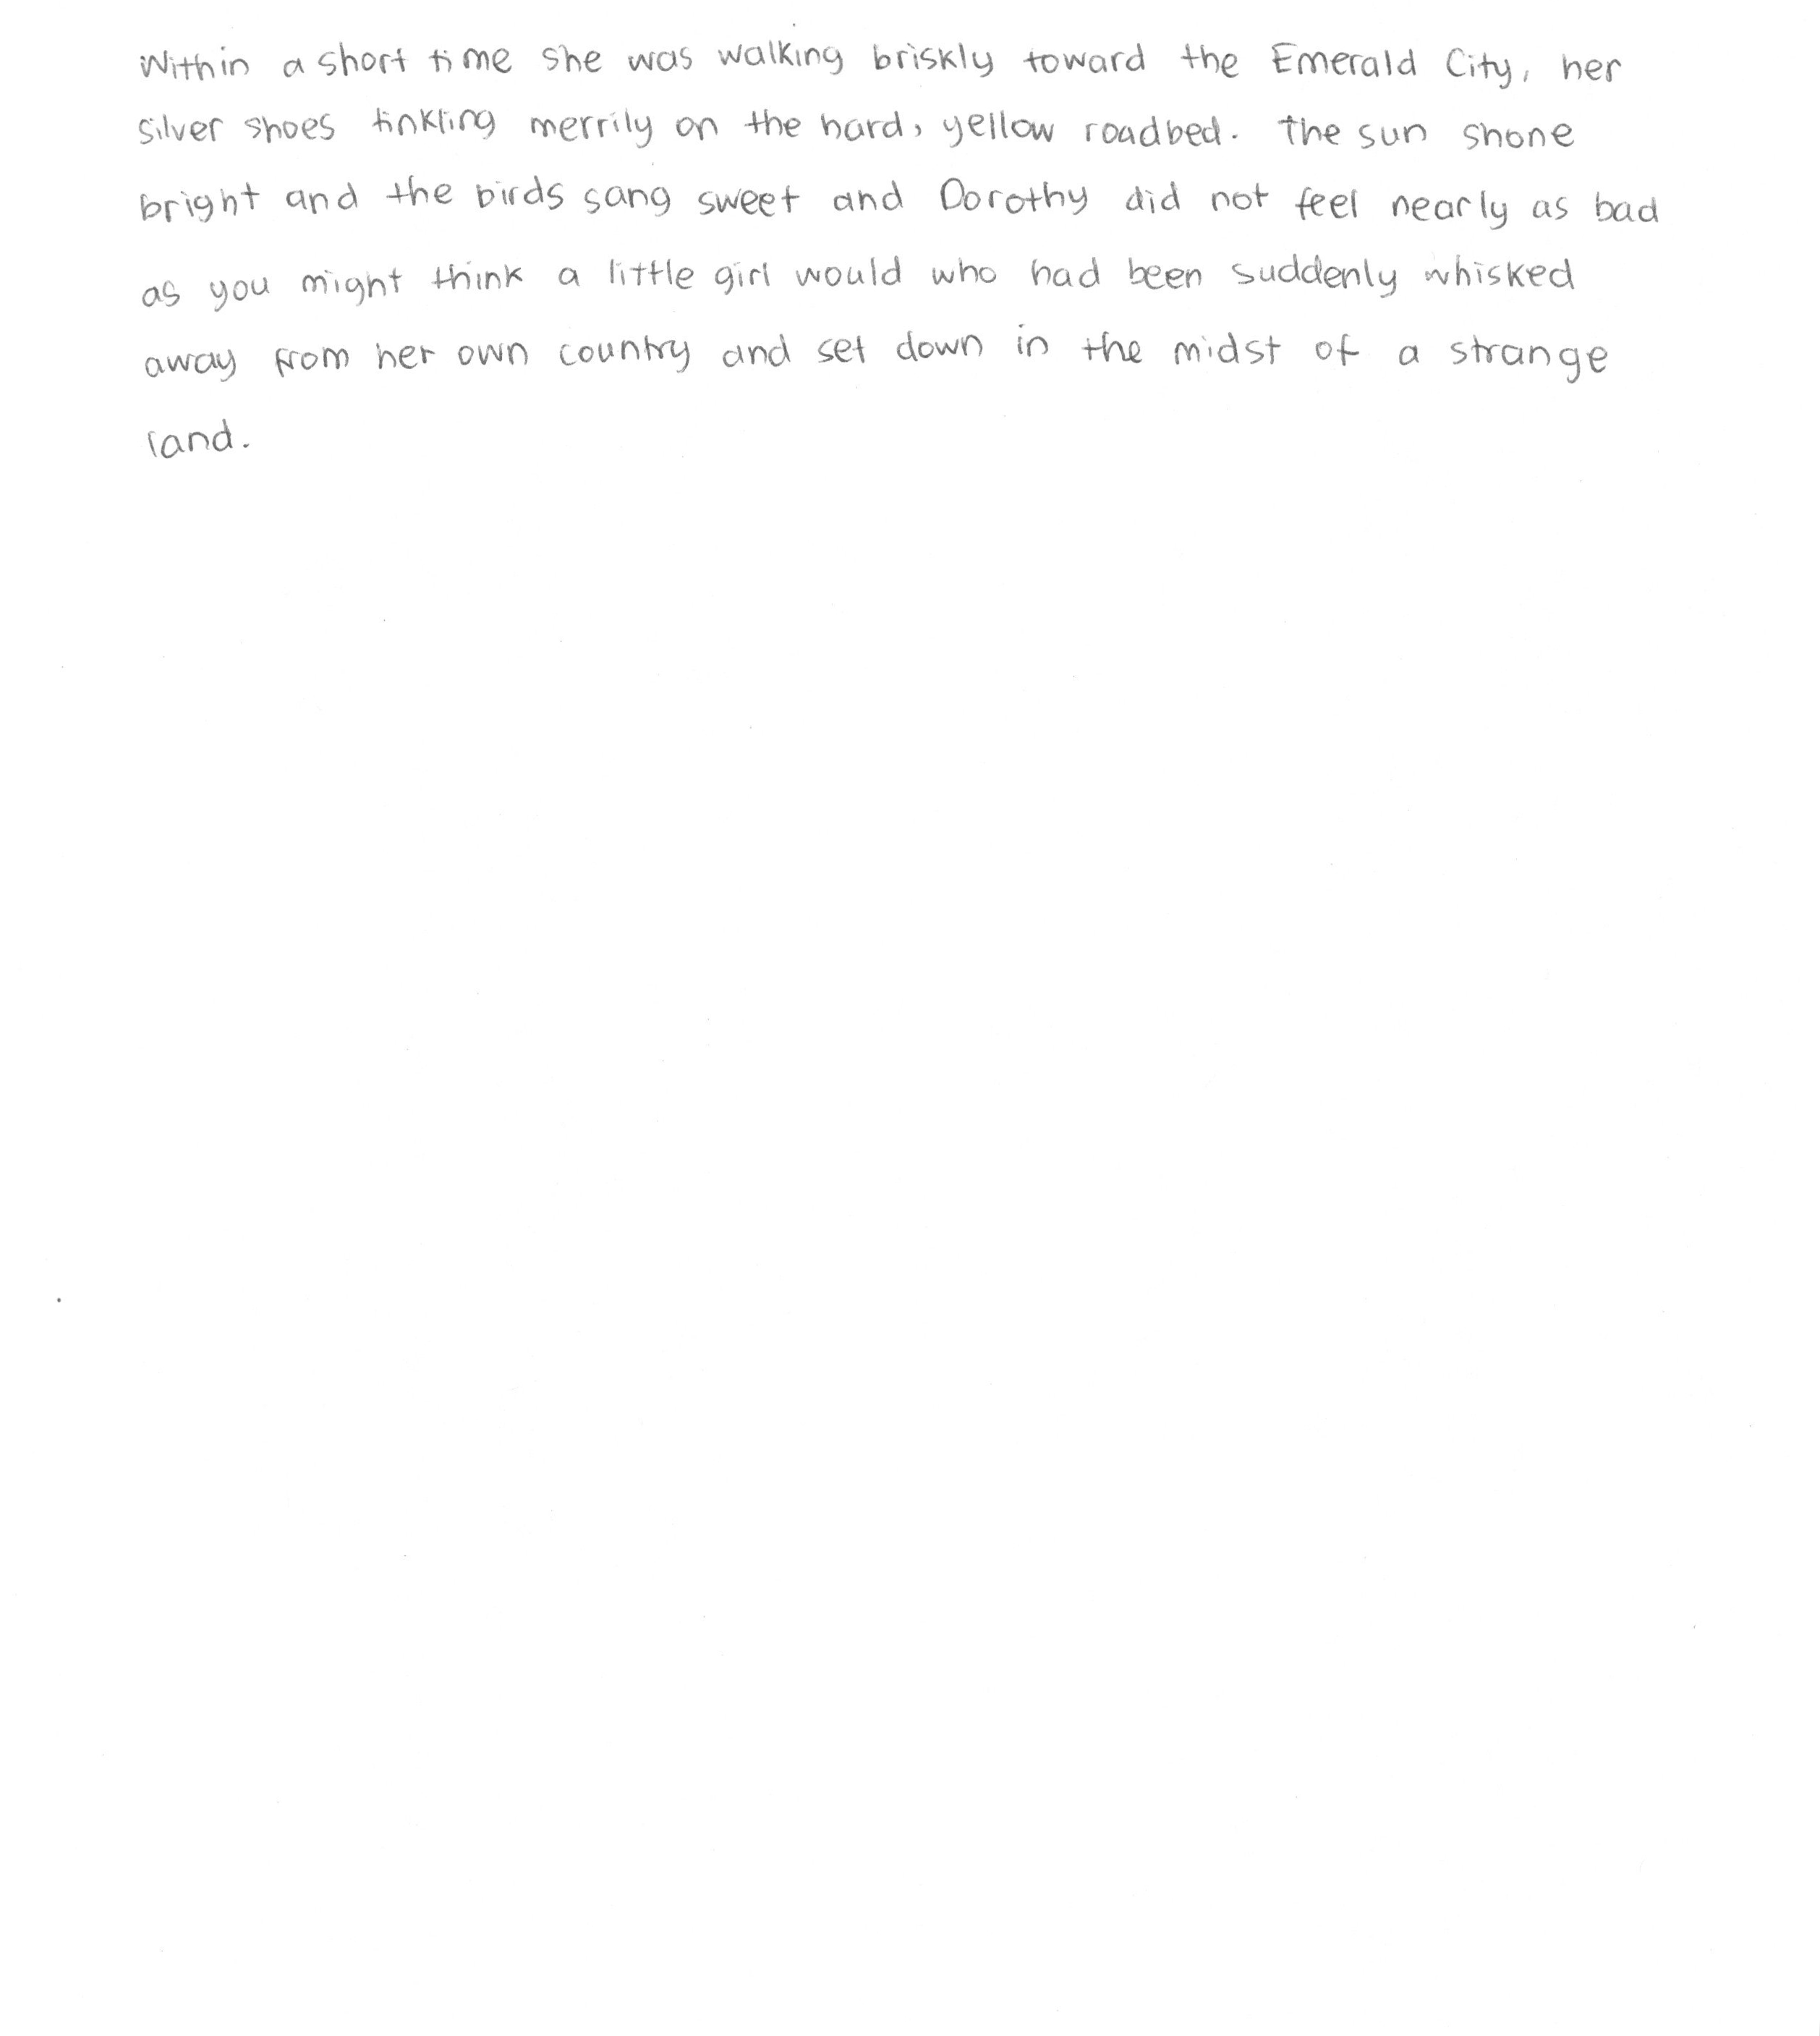 Within a short time she was walking briskly toward the Emerald City, her
silver shoes tinkling merrily on the hard, yellow roadbed. The sun shone
bright and the birds sang sweet and Dorothy did not feel nearly as bad
as you might think a little girl would who had been suddenly whisked
away from her own country and set down in the midst of a strange
land.